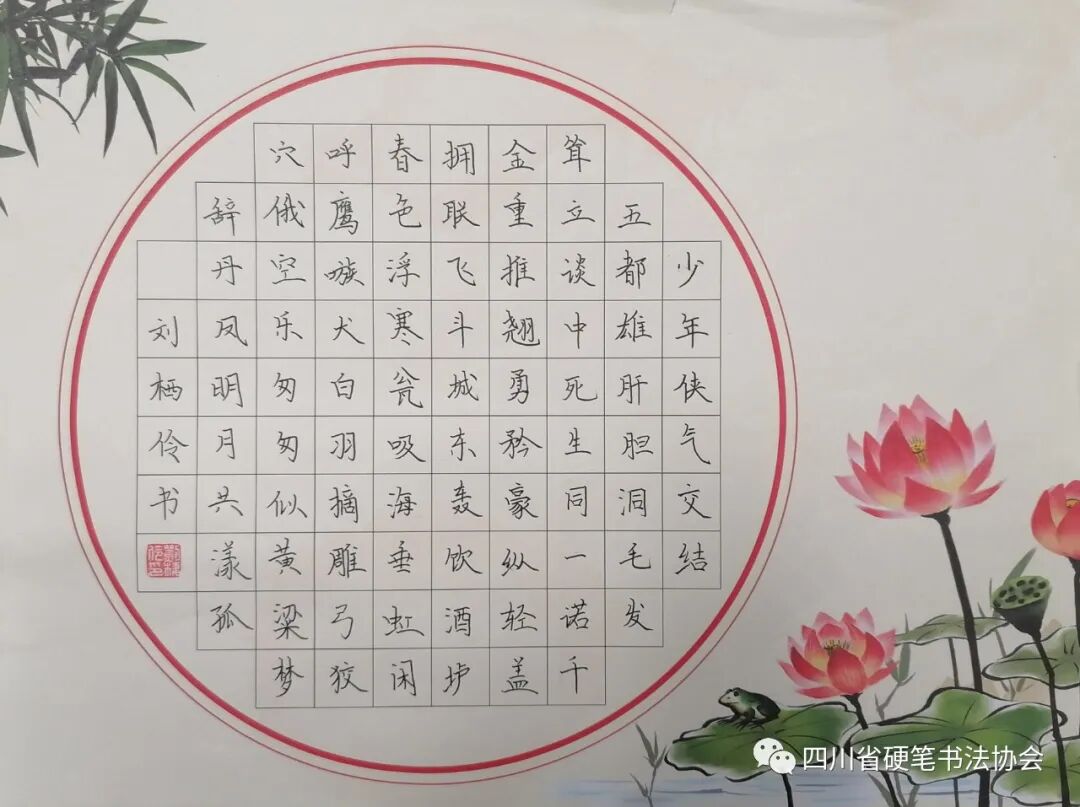 少年侠气交结
五都雄肝胆洞毛发
耸立谈中死生同一诺千
金重推翘勇矜豪纵轻盖
拥联飞斗城东轰饮酒垆
春色浮寒瓮吸海垂虹闲
呼鹰嗾犬白羽摘雕弓狡
穴俄空乐匆匆似黄梁梦
辞丹凤明月共漾孤
刘栖伶书
四川省硬笔书法协会